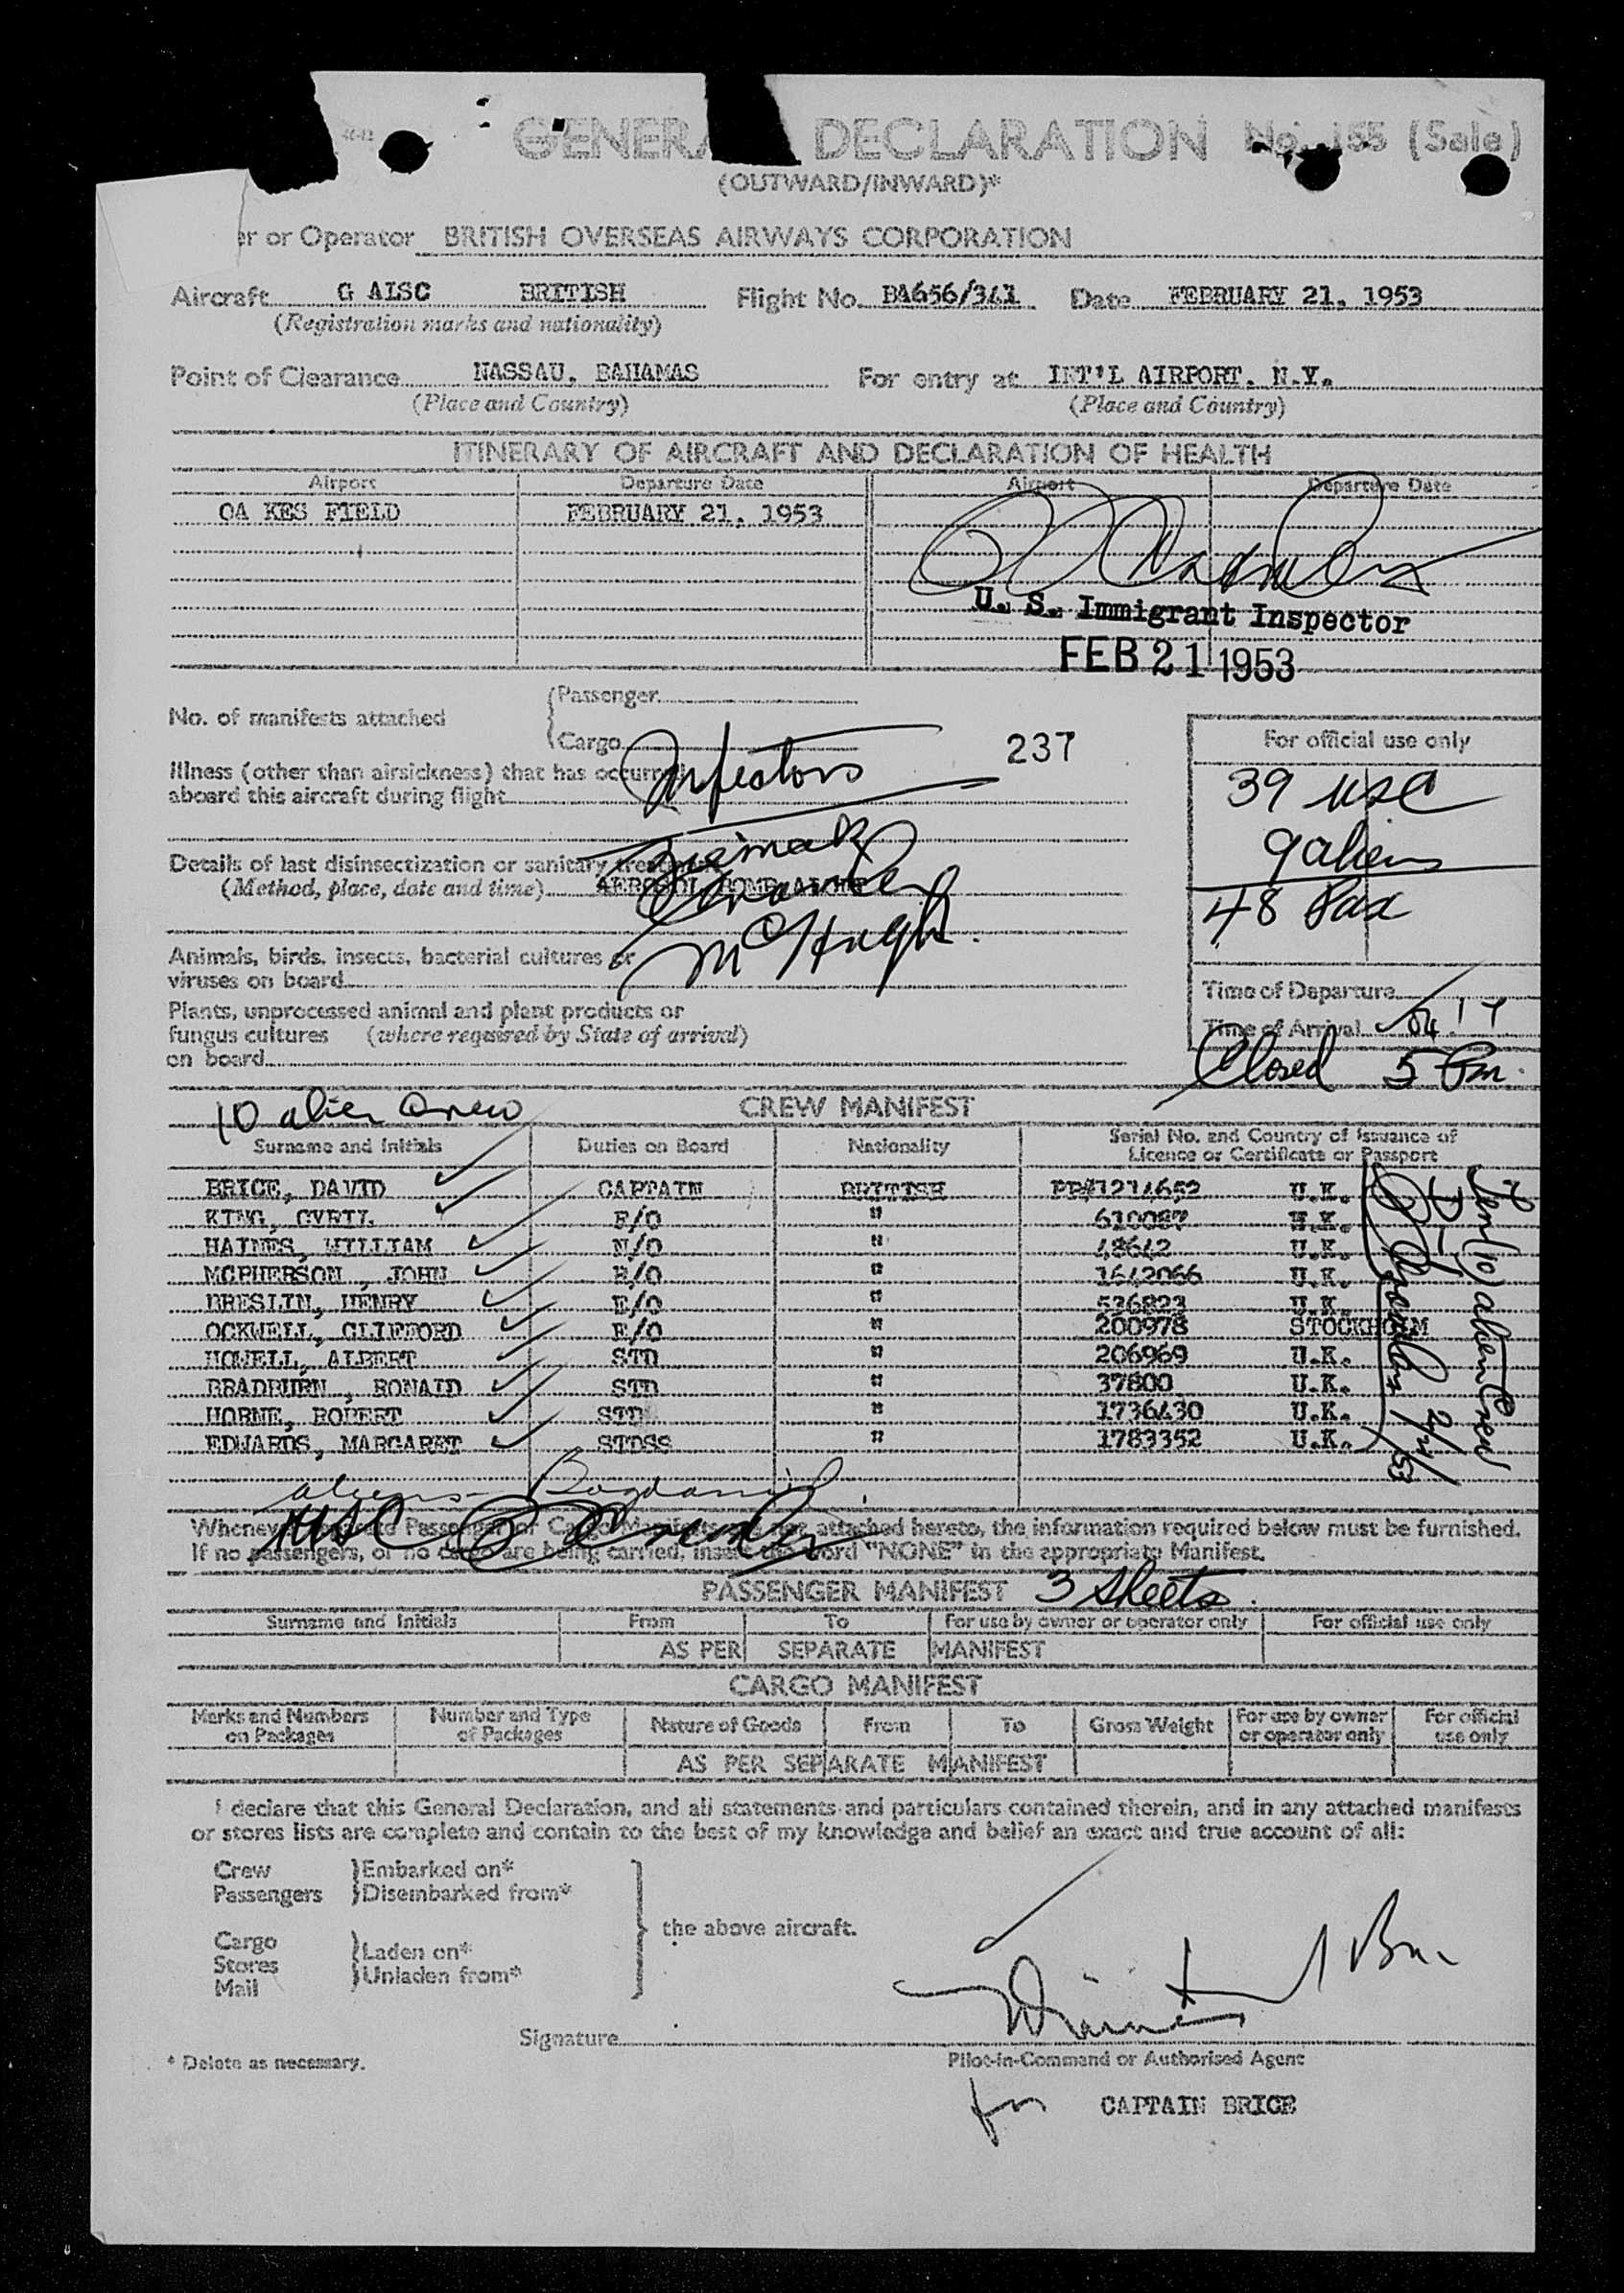 GENERA DECLARATION No. 155 (Sale)
(OUTWARD/INWARD)*
er or Operator BRITISH OVERSEAS AIRWAYS CORPORATION
Aircraft G AISC BRITISH Flight No. BA656/341 Date FEBRUARY 21, 1953
(Registration marks and nationality)
Point of Clearance NASSAU, BAHAMAS For entry at INT'L AIRPORT, N.Y.
(Place and Country) (Place and Country)
ITINERARY OF AIRCRAFT AND DECLARATION OF HEALTH
Airport Departure Date Airport Departure Date
OA KES FIELD FEBRUARY 21, 1953
U. S. Immigrant Inspector
FEB 21 1953
No. of manifests attached
Passenger
Cargo
237
For official use only
Illness (other than airsickness) that has occurred
aboard this aircraft during flight
Inspectors
39 USC
9 aliens
48 Pax
Details of last disinsectization or sanitary treatment
(Method, place, date and time) AEROSOL BOMB
McHugh.
Animals, birds, insects, bacterial cultures or
viruses on board
Plants, unprocessed animal and plant products or
fungus cultures (where required by State of arrival)
on board
Time of Departure
Time of Arrival
Closed 5 Pm.
10 alien Crew CREW MANIFEST
Surname and Initials Duties on Board Nationality Serial No. and Country of Issuance of
Licence or Certificate or Passport
BRICE, DAVID CAPTAIN BRITISH PP#1214652 U.K.
KING, CYRIL F/O " 610087 U.K.
HAINES, WILLIAM N/O " 48642 U.K.
MCPHERSON , JOHN R/O " 1642066 U.K.
BRESLIN, HENRY E/O " 536823 U.K.
OCKWELL, CLIFFORD E/O " 200978 STOCKHOLM
HOWELL, ALBERT STD " 206969 U.K.
BRADBURN , RONALD STD " 37800 U.K.
HORNE, ROBERT STD " 1736430 U.K.
EDWARDS, MARGARET STDSS " 1783352 U.K.
Ten (10) alien Crew
2/21/53
aliens -
USC
Whenever Passenger or Cargo Manifests are not attached hereto, the information required below must be furnished.
If no passengers, or no cargo are being carried, insert the word "NONE" in the appropriate Manifest.
PASSENGER MANIFEST 3 sheets.
Surname and Initials From To For use by owner or operator only For official use only
AS PER SEPARATE MANIFEST
CARGO MANIFEST
Marks and Numbers on Packages Number and Type of Packages Nature of Goods From To Gross Weight For use by owner or operator only For official use only
AS PER SEPARATE MANIFEST
I declare that this General Declaration, and all statements and particulars contained therein, and in any attached manifests
or stores lists are complete and contain to the best of my knowledge and belief an exact and true account of all:
Crew Embarked on*
Passengers Disembarked from*
the above aircraft.
Cargo
Stores Laden on*
Mail Unladen from*
Signature
* Delete as necessary.
Pilot-in-Command or Authorised Agent
for CAPTAIN BRICE